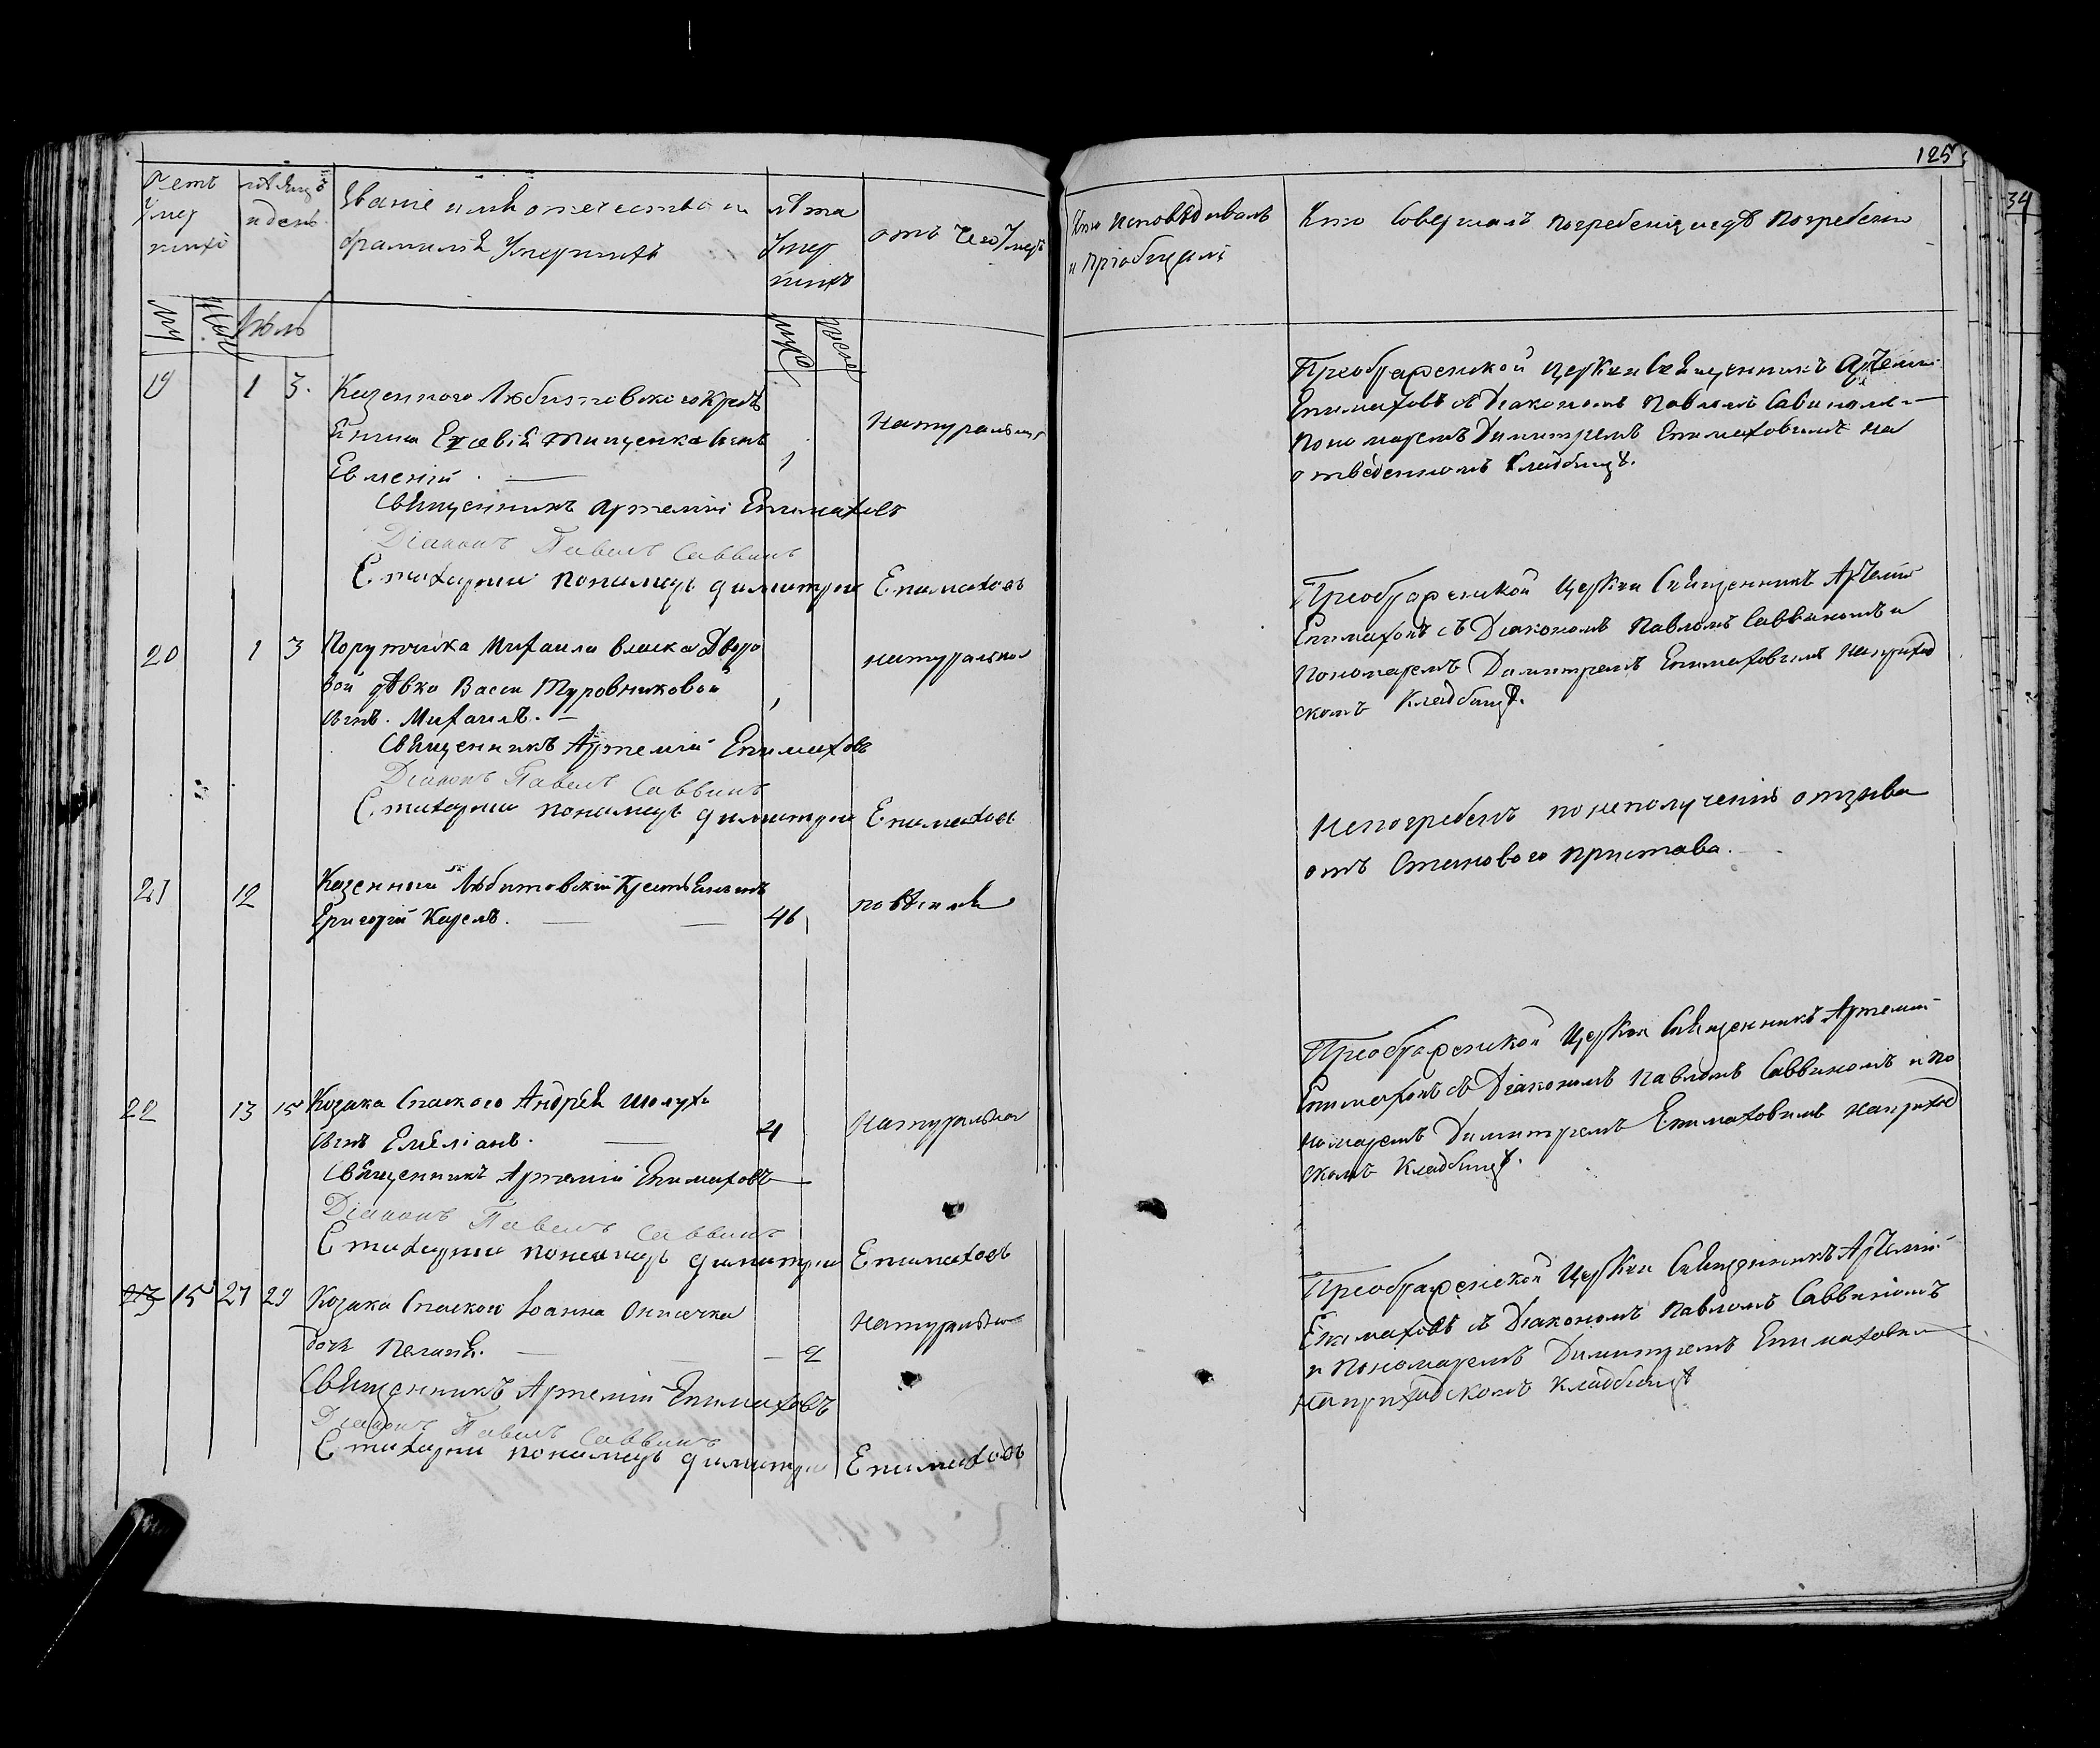 125
34
Счетъ умершихъ
мѣсяцъ и день
Званіе имя отечество и
фамилія Умершихъ
лѣта
Умер
шихъ
отъ чего Умеръ
Кто исповѣдивалъ
и пріобщалъ
Кто Совершалъ погребеніе и гдѣ погребены
муж
жен
Іюль
муж
женс
19 1 3. Казеннаго Любитовского Крестъ
янина Евсевія Тищенка сынъ
Евменій 1 Натурально
Священникъ Артемій Епимаховъ
Діаконъ Павелъ Саввинъ
Стихарний пономарь Димитрій Епимаховъ
Преображенской Церкви Священникъ Артемій
Епимаховъ съ Діакономъ Павломъ Савинимъ
Пономаремъ Димитріемъ Епимаховимъ на
отведенномъ Кладбищѣ.
20 1 3 Порутчика Михаила Дворо
вой дѣвки Васси Туровниковой
сынъ Михаилъ. 1 натурально
Священникъ Артемій Епимаховъ
Діаконъ Павелъ Саввинъ
Стихарний пономарь Димитрій Епимаховъ
Преображенской Церкви Священникъ Артемій
Епимаховъ съ Діакономъ Павломъ Саввиномъ и
Пономаремъ Димитріемъ Епимаховимъ на приход
скомъ Кладбищѣ.
21 12 Казенный Любитовскій Крестьянинъ
Григорій Карелъ. 46
Непогребенъ по неполученію отзива
отъ Станового пристава.
22 13 15 Козака Спаского Андрея Шолуха
сынъ Емеліанъ. 4 Натурально
Священникъ Артемій Епимаховъ
Діаконъ Павелъ Саввинъ
Стихарний пономарь Димитрій Епимаховъ
Преображенской Церкви Священникъ Артемій
Епимаховъ съ Діакономъ Павломъ Саввиномъ и по
номаремъ Димитріемъ Епимаховимъ на приход
скомъ Кладбищѣ.
23 15 27 29 Козака Спаского Іоанна
дочь Пелагія. 2 Натурально
Священникъ Артемій Епимаховъ
Діаконъ Павелъ Саввинъ
Стихарний пономарь Димитрій Епимаховъ
Преображенской Церкви Священникъ Артемій
Епимаховъ съ Діакономъ Павломъ Саввиномъ
и Пономаремъ Димитріемъ Епимаховим
на приходскомъ Кладбищѣ